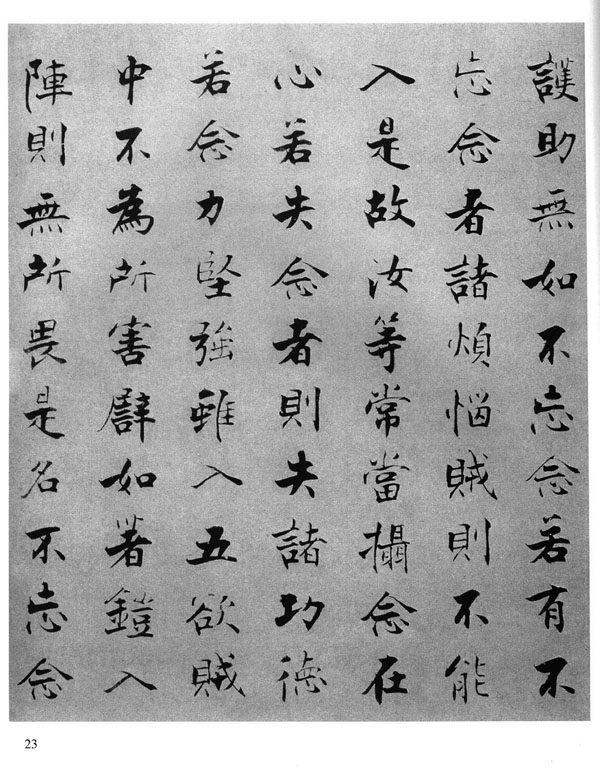 護助無如不忘念若有不
忘念者諸煩惱賊則不能
入是故汝等常當攝念在
心若失念者則失諸功德
若念力堅強雖入五欲賊
中不為所害譬如著鎧入
陣則無所畏是名不忘念
23